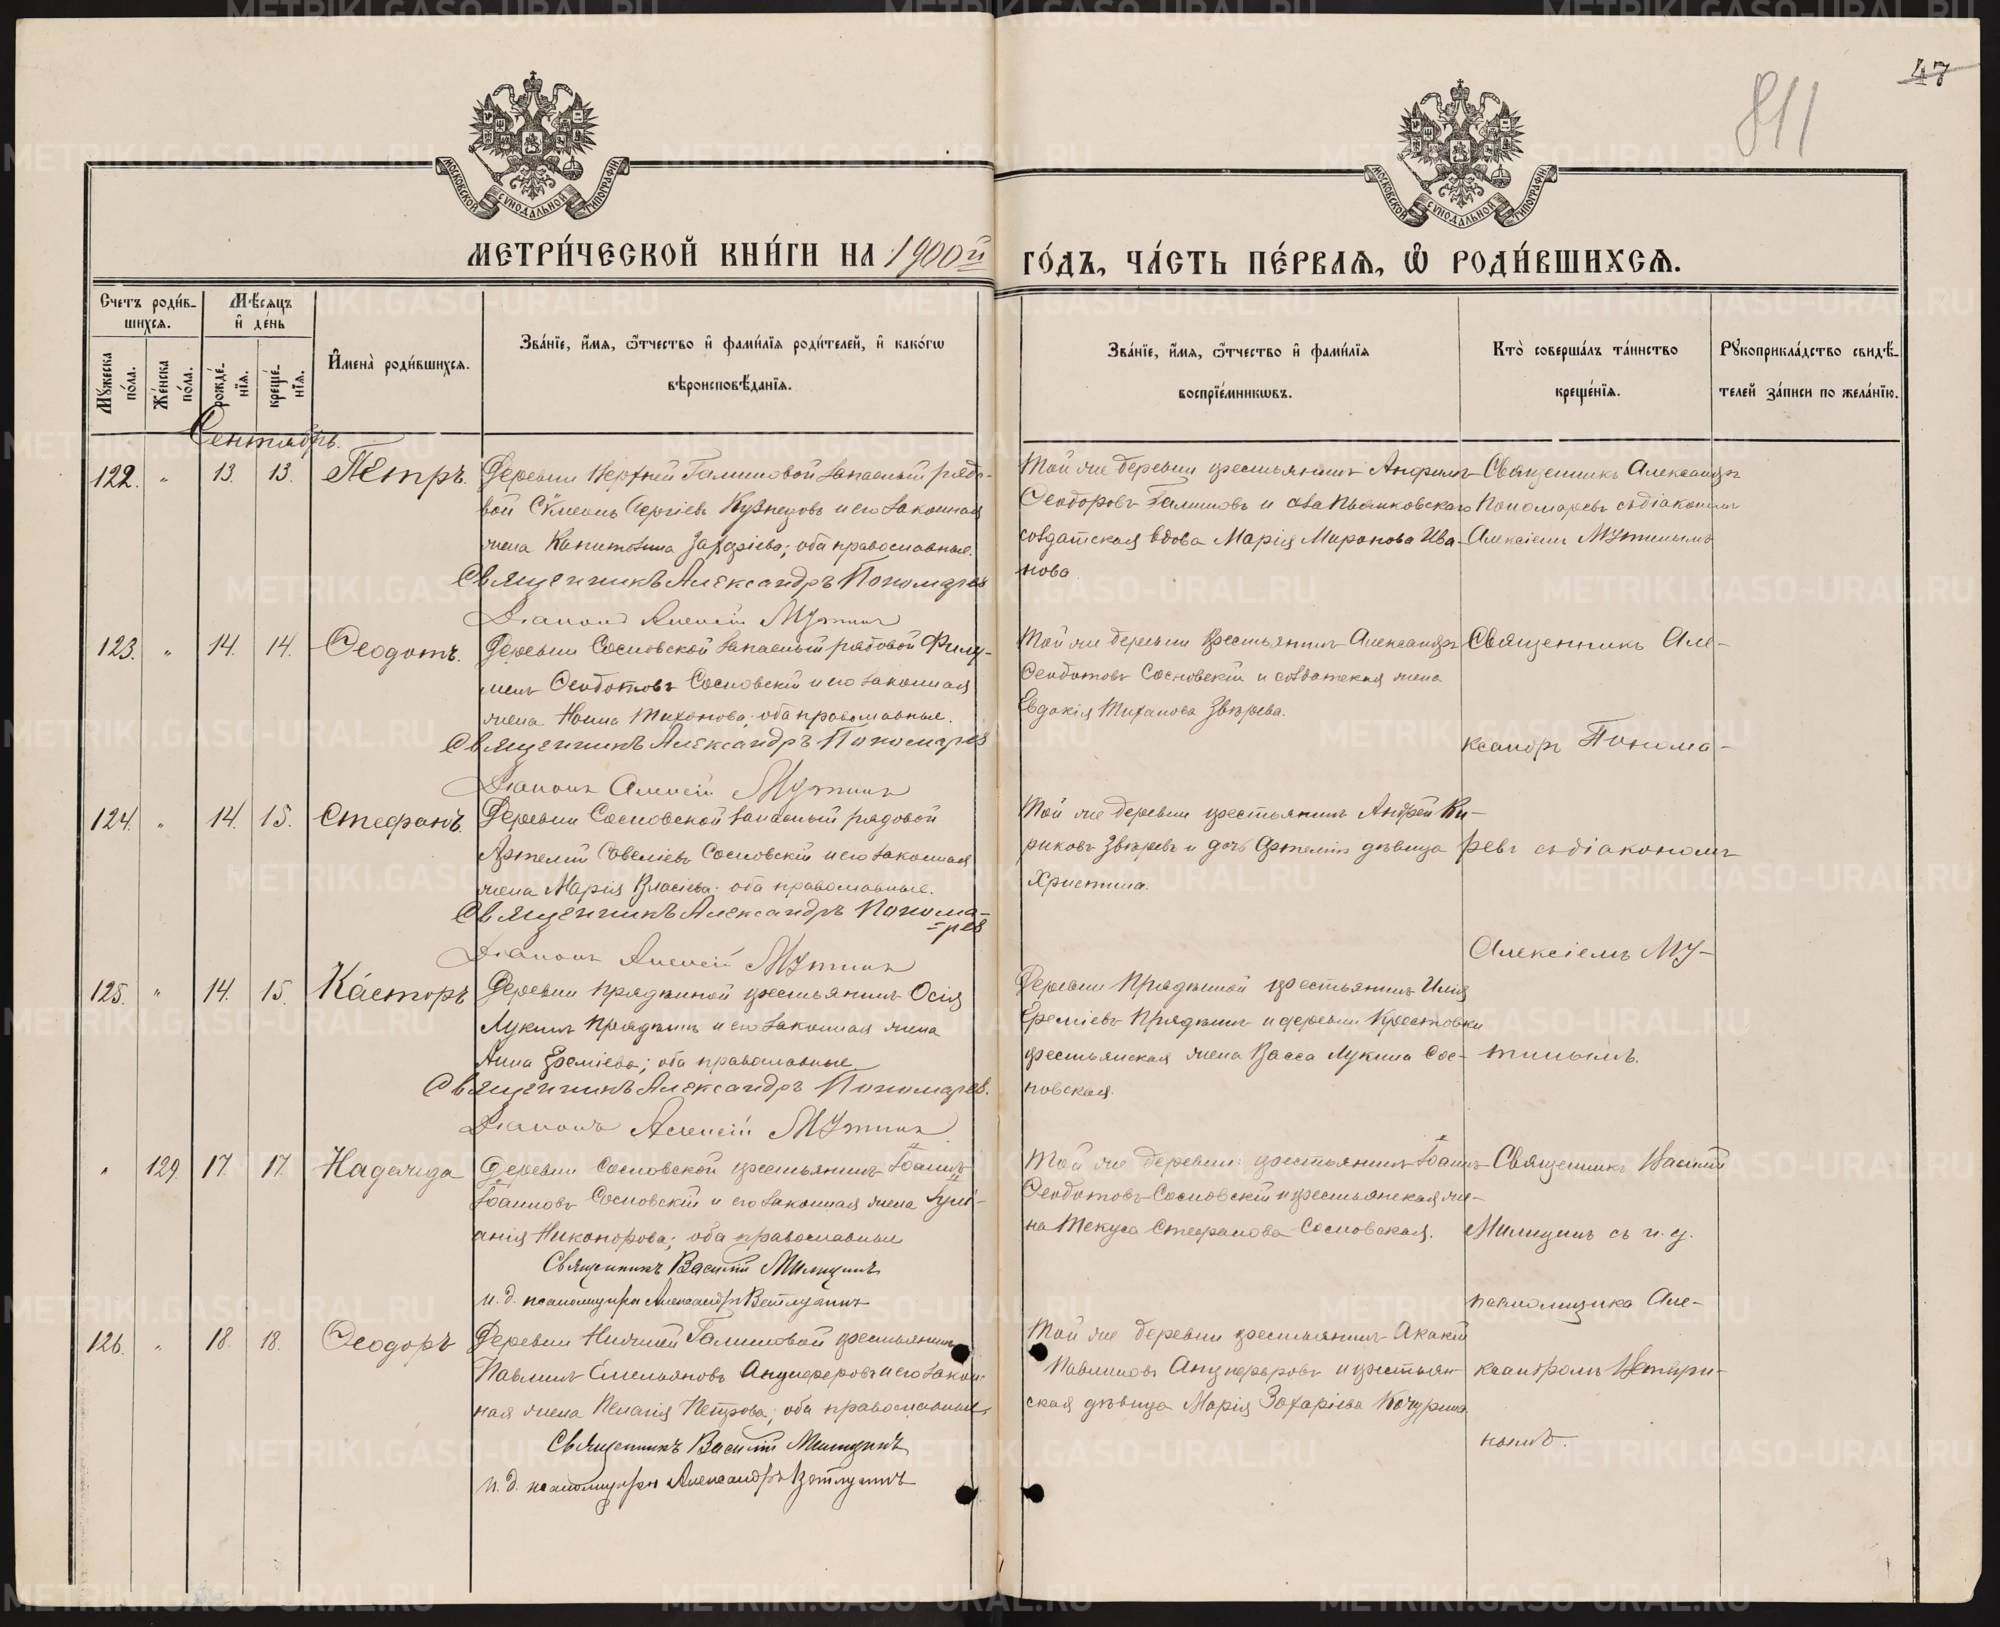 47
811
МОСКОВСКОЙ СУНОДАЛЬНОЙ ТИПОГРАФІИ
МОСКОВСКОЙ СУНОДАЛЬНОЙ ТИПОГРАФІИ
МЕТРИ́ЧЕСКОЙ КНИ́ГИ НА 1900й ГО́ДЪ, ЧА́СТЬ ПЕ́РВАѦ, Ѽ РОДИ́ВШИХСѦ.
Счетъ роди́в-
шихсѧ.
Мꙋжеска по́ла.
Же́нска по́ла.
Мѣ́сѧцъ и҆ де́нь
рожде́-
нїѧ.
креще́-
нїѧ.
И҆мена̀ роди́вшихсѧ.
Зва́нїе, и҆́мѧ, ѻ҆́тчество и҆ фами́лїѧ роди́телей, и҆ како́гѡ
вѣроисповѣ́данїѧ.
Зва́нїе, и҆́мѧ, ѻ҆́тчество и҆ фами́лїѧ
воспрїе́мникѡвъ.
Кто̀ соверша́лъ та́инство
креще́нїѧ.
Рꙋкоприкла́дство свидѣ́-
телей за́писи по жела́нїю.
Сентябрь.
122. " 13. 13. Пётръ.
Деревни Верхней Галишовой запасный рядо-
вой Сѵмеонъ Сергіевъ Кузнецовъ и его законная
жена Капитолина Захаріева; оба православные.
Священникъ Александръ Пономарев
Діаконъ Алексій Мутинъ
Той же деревни крестьянинъ
Ѳеодоровъ Галишовъ и
солдатская вдова Марія Миронова Ива-
нова.
Священникъ Александръ
Пономаревъ съ діакономъ
Алексіемъ Мутинымъ
123. " 14. 14. Ѳеодотъ.
Деревни Сосновской запасный рядовой Филу-
менъ Ѳеодотовъ Сосновскій и его законная
жена Нонна Тихонова; оба православные.
Священникъ Александръ Пономарев
Діаконъ Алексій Мутинъ
Той же деревни крестьянинъ Александръ
Ѳеодотовъ Сосновскій и солдатская жена
Евдокія Тиханова Звѣрева.
Священникъ Але-
ксандръ Понома-
124. " 14. 15. Стефанъ.
Деревни Сосновской запасный рядовой
Артемій Савеліевъ Сосновскій и его законная
жена Марія Власіева; оба православные.
Священникъ Александръ Понома-
=рев
Діаконъ Алексій Мутинъ
Той же деревни крестьянинъ Андрей Ки-
риковъ Звѣревъ и дочь Артемія дѣвица
Христина.
ревъ съ діакономъ
Алексіемъ Му-
125. " 14. 15. Ка́сторъ
Деревни Прядкиной крестьянинъ Осія
Лукинъ Прядкинъ и его законная жена
Анна Ереміева; оба православные
Священникъ Александръ Пономарев.
Діаконъ Алексій Мутинъ
Деревни Прядкиной крестьянинъ Илія
Ереміевъ Прядкинъ и деревни Крестовки
крестьянская жена Васса Лукина Сос-
новская.
тинымъ.
" 129 17. 17. Надежда
Деревни Сосновской крестьянинъ Іоаннъ
Іоанновъ Сосновскій и его законная жена Іулі-
анія Никонорова; оба православные
Священникъ Василій Милицинъ
и. д. псаломщика Александръ Ветлугинъ
Той же деревни: крестьянинъ Іоаннъ
Ѳеодотовъ Сосновскій и крестьянская же-
на Текуса Стефанова Сосновская.
Священникъ Василій
Милицинъ съ и. д.
псаломщика Але-
126. " 18. 18. Ѳеодоръ
Деревни Нижней Галишовой крестьянинъ
Павлинъ Емельяновъ Анциферовъ и его закон-
ная жена Пелагія Петрова; оба православные
Священникъ Василій Милицинъ
и. д. псаломщика Александръ Ветлугинъ
Той же деревни крестьянинъ Акакій
Павлиновъ Анциферовъ и крестьян-
ская дѣвица Марія Захаріева Кочурина
ксандромъ